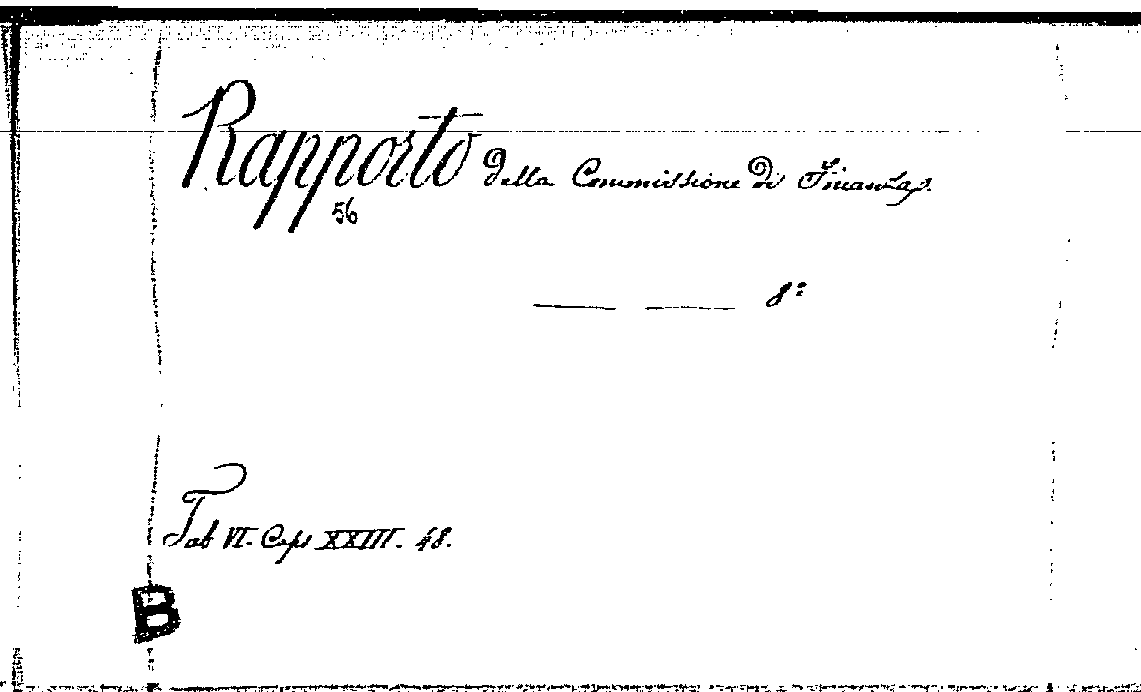 Rapporto della Commissione di Finanza.
56
— — 8:
Tab VI. Caps XXIII. 48.
B